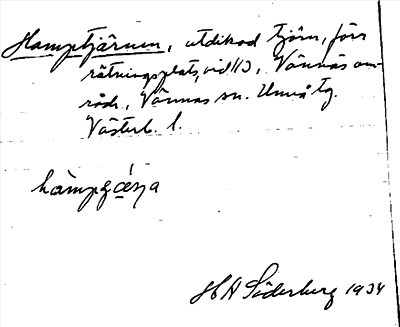 Hamptjärnen, utdikad tjärn, förr
rötningsplats, vid 113, Vännäs om-
råde, Vännäs sn. Umeå tg.
Västerb. l.
Söderberg 1934